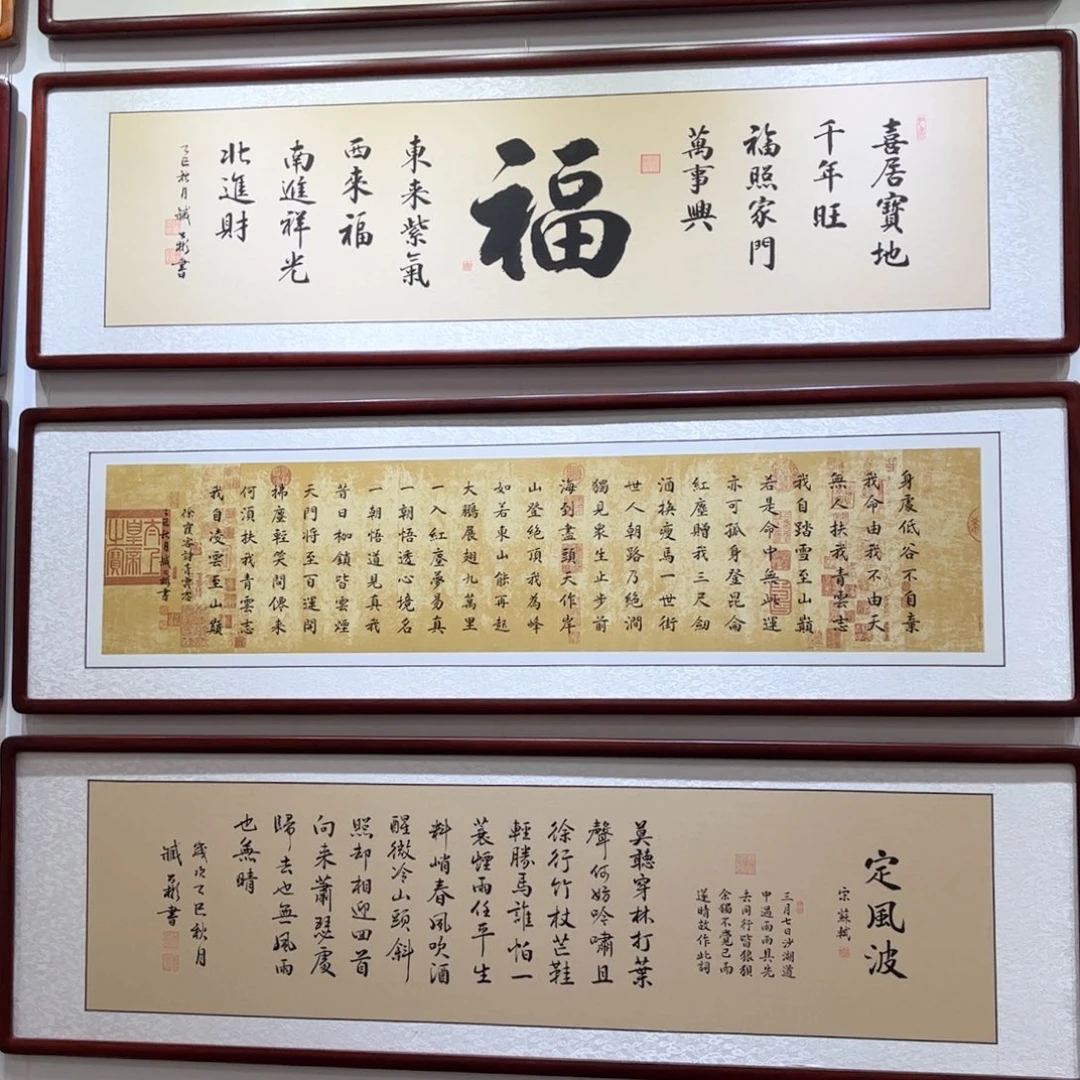 喜居寶地
千年旺
福照家門
萬事興
福
東来紫氣
西來福
南進祥光
北進財
乙巳秋月 誠彬書
身處低谷不自棄
我命由我不由天
無人扶我青雲志
我自踏雪至山巔
若是命中無此運
亦可孤身登昆侖
紅塵贈我三尺劍
酒換瘦馬一世街
世人朝路乃絕澗
獨見眾生止步前
海到盡頭天作岸
山登絕頂我為峰
如若東山能再起
大鵬展翅九萬里
一入紅塵夢易真
一朝悟透心境名
一朝悟道見真我
昔日枷鎖皆雲煙
天門將至百運開
拂塵輕笑問儂来
何須扶我青雲志
我自凌雲至山巔
定風波
宋 蘇軾
三月七日沙湖道
中遇雨雨具先
去同行皆狼狽
余獨不覺已而
遂晴故作此詞
莫聽穿林打葉
聲何妨吟嘯且
徐行竹杖芒鞋
輕勝馬誰怕一
蓑煙雨任平生
料峭春風吹酒
醒微冷山頭斜
照却相迎回首
向来蕭瑟處
歸去也無風雨
也無晴
歲次乙巳秋月
誠彬書